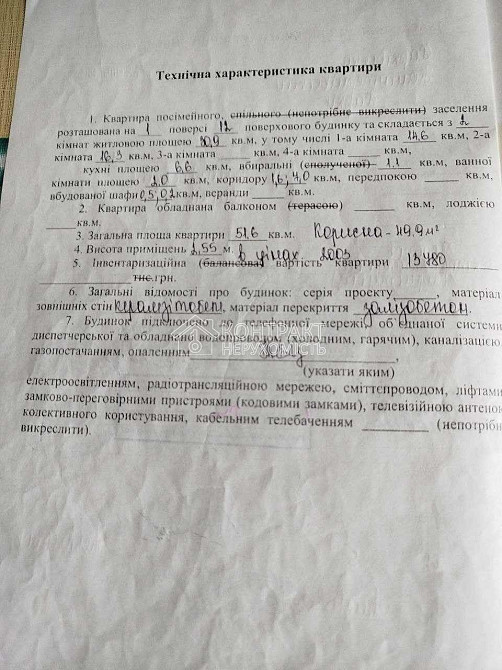 Технічна характеристика квартири
1. Квартира посімейного, спільного (непотрібне викреслити) заселення
розташована на 1 поверсі 12 поверхового будинку та складається з 2
кімнат житловою площею 30,9 кв.м, у тому числі 1-а кімната 14,6 кв.м, 2-а
кімната 16,3 кв.м, 3-а кімната ____ кв.м, 4-а кімната ____ кв.м,
кухні площею 6,6 кв.м, вбиральні (сполученої) 1.1 кв.м, ванної
кімнати площею 2,0 кв.м, коридору 1,6; 4,0 кв.м, передпокою ____ кв.м,
вбудованої шафи 0,5; 0,2 кв.м, веранди ____ кв.м.
2. Квартира обладнана балконом (терасою) ____ кв.м, лоджією
____ кв.м.
3. Загальна площа квартири 51,6 кв.м. Корисна - 49,9 м²
4. Висота приміщень 2,55 м. в цінах 2003
5. Інвентаризаційна (балансова) вартість квартири 13480
тис.грн.
6. Загальні відомості про будинок: серія проекту ____, матеріал
зовнішніх стін керамзітобет, матеріал перекриття залізобетон.
7. Будинок підключено до телефонної мережі, об'єднаної системи
диспетчерської та обладнано водопроводом (холодним, гарячим), каналізацією
газопостачанням, опаленням ____,
(указати яким)
електроосвітленням, радіотрансляційною мережею, сміттєпроводом, ліфтами
замково-переговірними пристроями (кодовими замками), телевізійною антеною
колективного користування, кабельним телебаченням ____ (непотрібн
викреслити).
КОНТРАКТ
НЕРУХОМІСТЬ